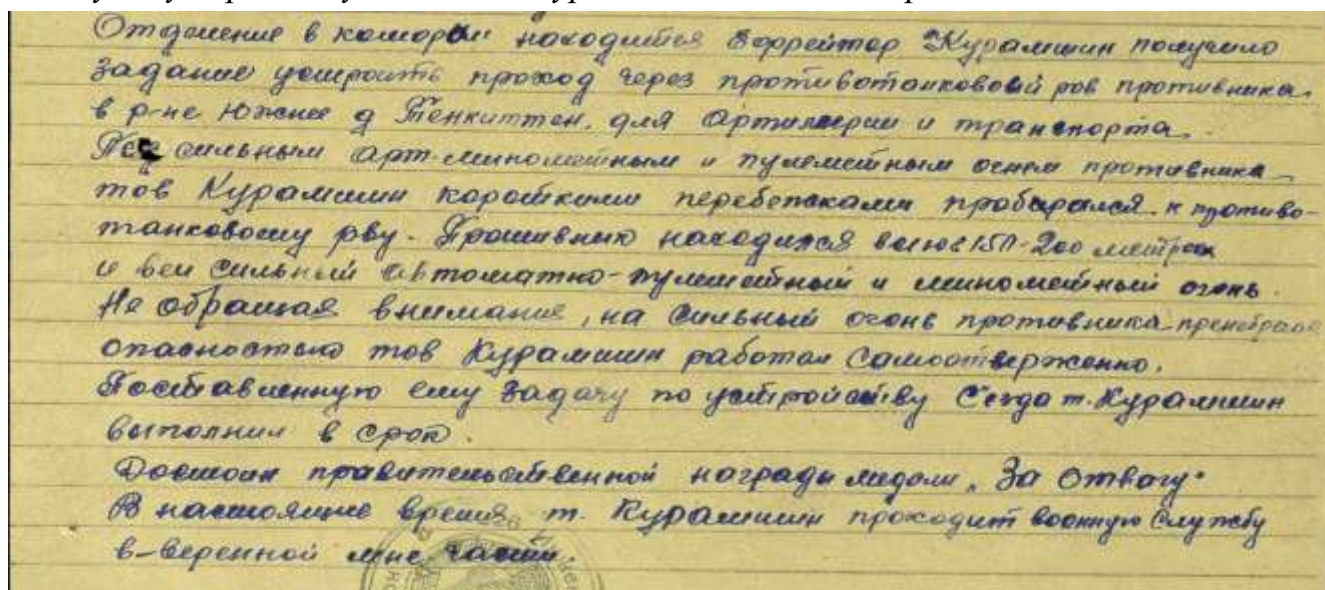 Отделение в котором находится Ефрейтор Курамшин получило
задание устроить проход через противотанкововый ров противника
в р-не Южнее д Тенкиттен, для Артиллерии и транспорта.
Под сильным арт-минометным и пулеметным огнем противника
тов Курамшин короткими перебежками пробирался к противо-
танковому рву. Противник находился всего 150-200 метрах
и вел сильный автоматно-пулеметный и минометный огонь.
Не обращая внимание, на сильный огонь противника пренебрегая
опасностью тов Курамшин работал самоотверженно.
Поставленную ему задачу по устройству Сезда т. Курамшин
выполнил в срок.
Достоин правительственной награды медали "За Отвагу"
В настоящие время т. Курамшин проходит военную службу
в-веренной мне части.